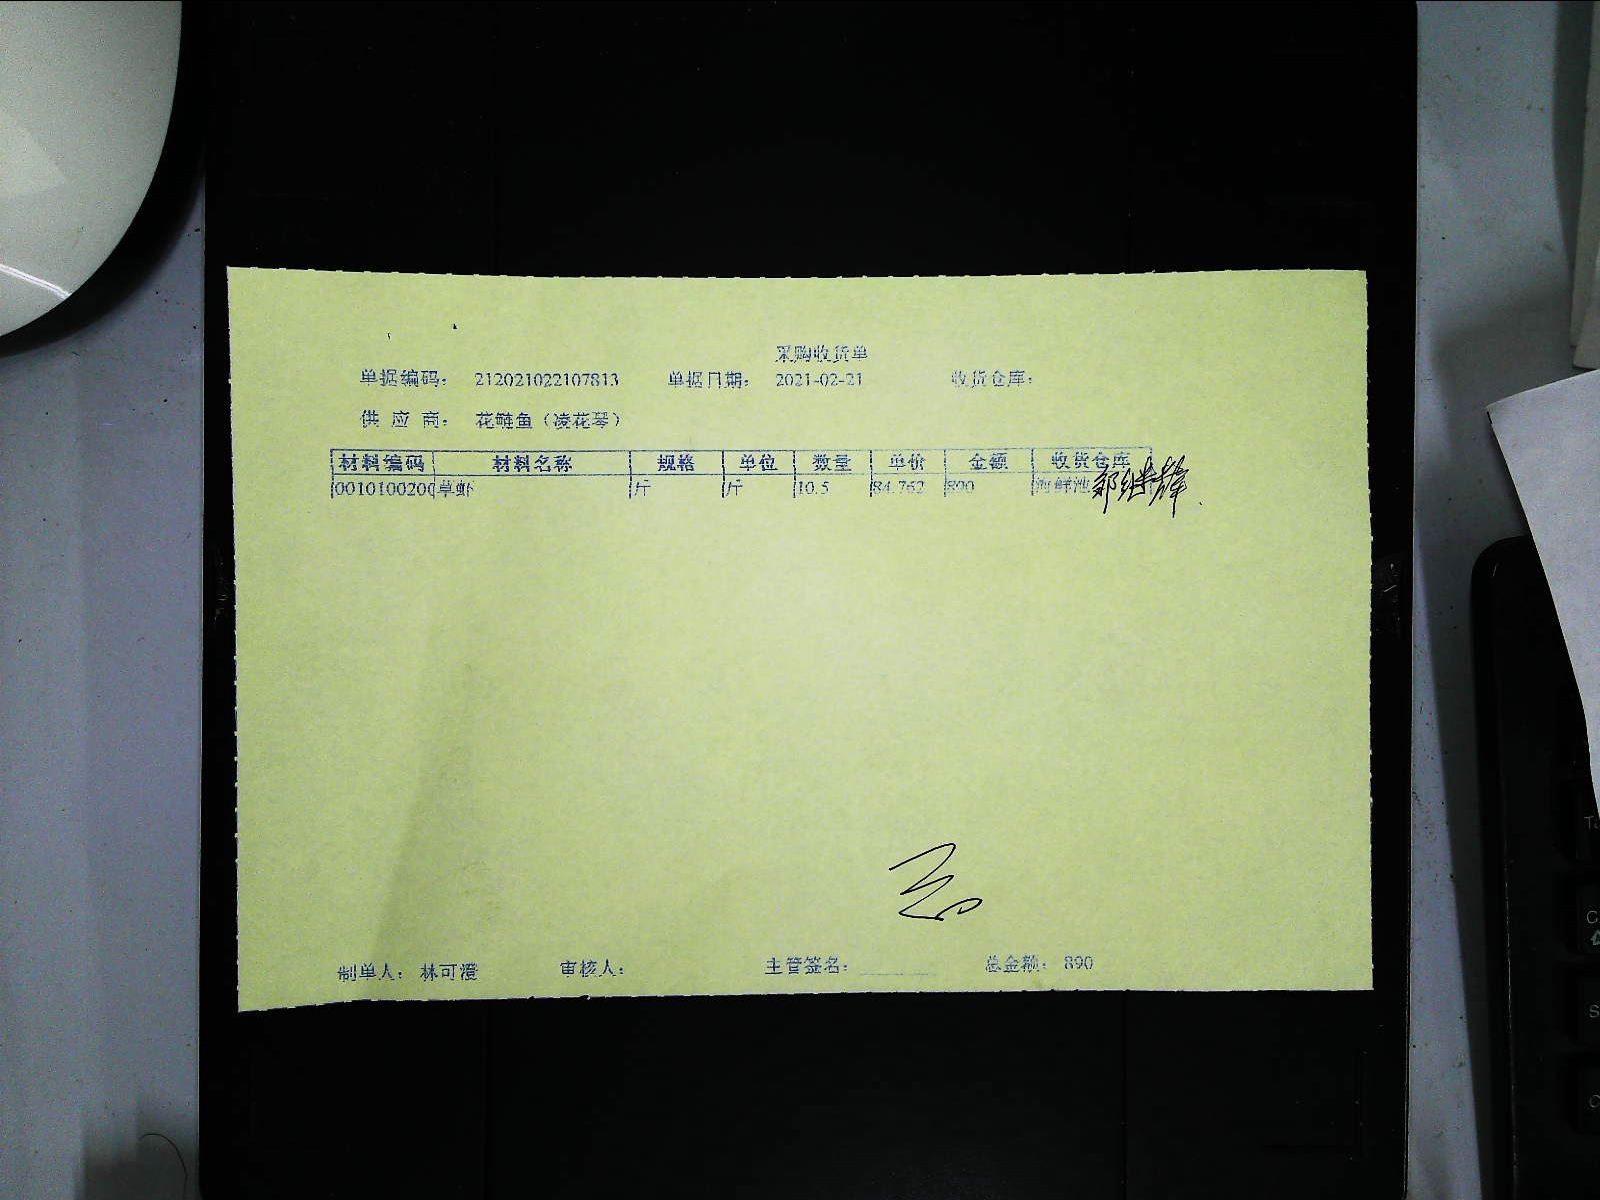 采购收货单
单据编码： 212021022107813 单据日期： 2021-02-21 收货仓库：
供 应 商： 花鲢鱼（凌花琴）
材料编码 材料名称 规格 单位 数量 单价 金额 收货仓库
0010100200 草虾 斤 斤 10.5 84.762 890 海鲜池
制单人： 林可澄 审核人： 主管签名： 总金额： 890